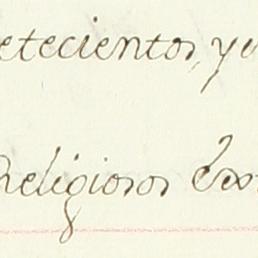 etecientos, y
Religiosos